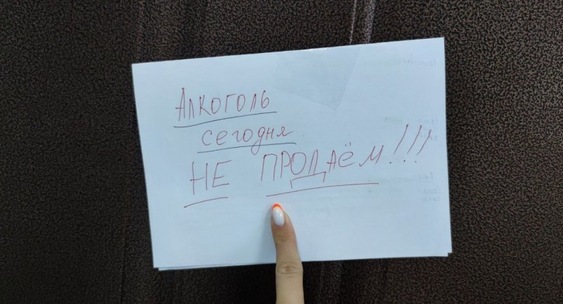 Алкоголь
сегодня
НЕ ПРОДАЁМ!!!